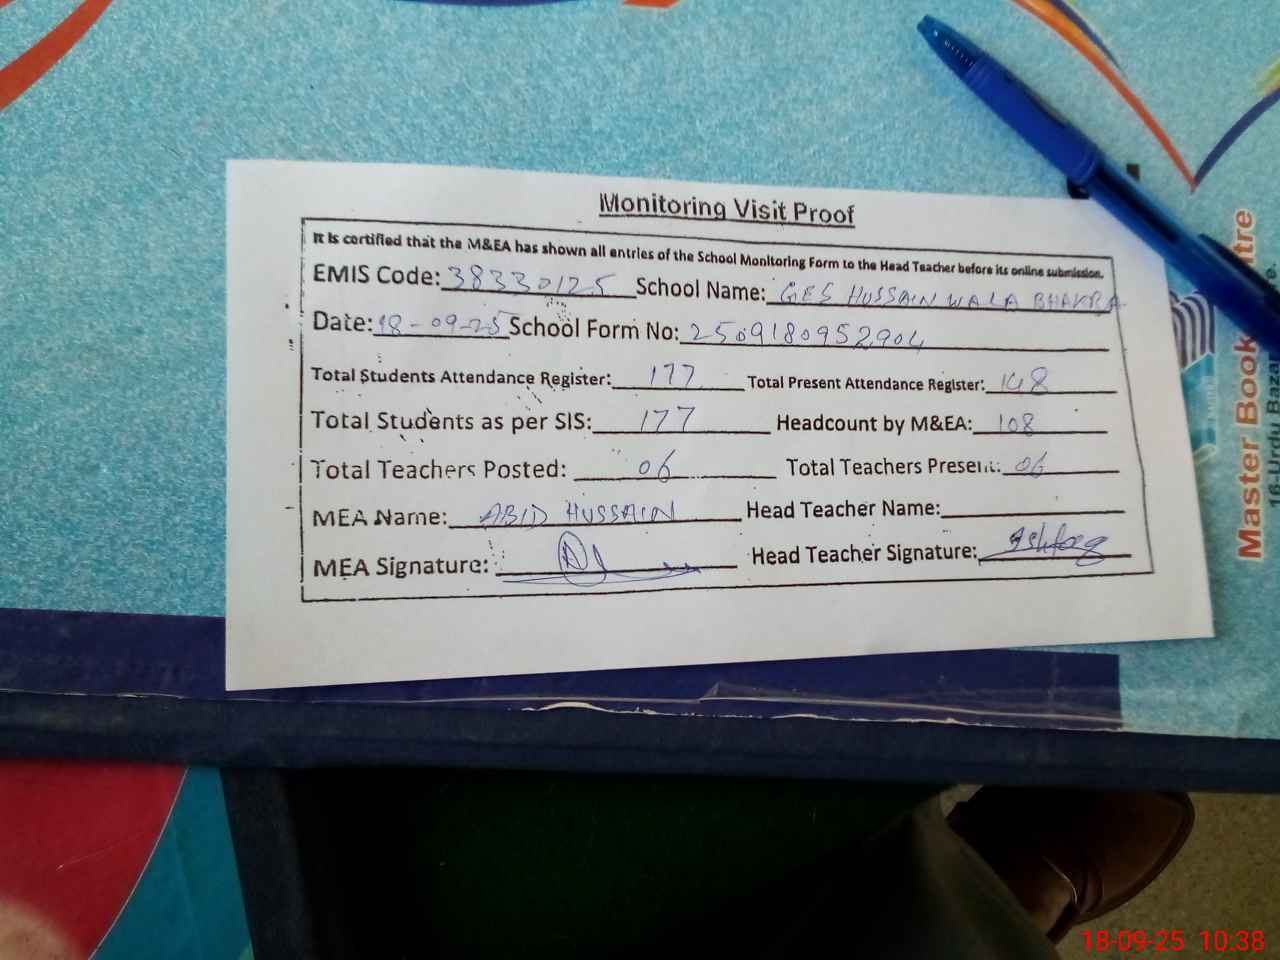 Monitoring Visit Proof
It is certified that the M&EA has shown all entries of the School Monitoring Form to the Head Teacher before its online submission.
EMIS Code: 38330125 School Name: GES HUSSAIN WALA BHAKRA
Date: 18-09-25 School Form No: 2509180952904
Total Students Attendance Register: 177 Total Present Attendance Register: 148
Total Students as per SIS: 177 Headcount by M&EA: 108
Total Teachers Posted: 06 Total Teachers Present: 06
MEA Name: ABID HUSSAIN Head Teacher Name:
MEA Signature: Head Teacher Signature:
Master Book
Urdu Bazar
18-09-25 10:38